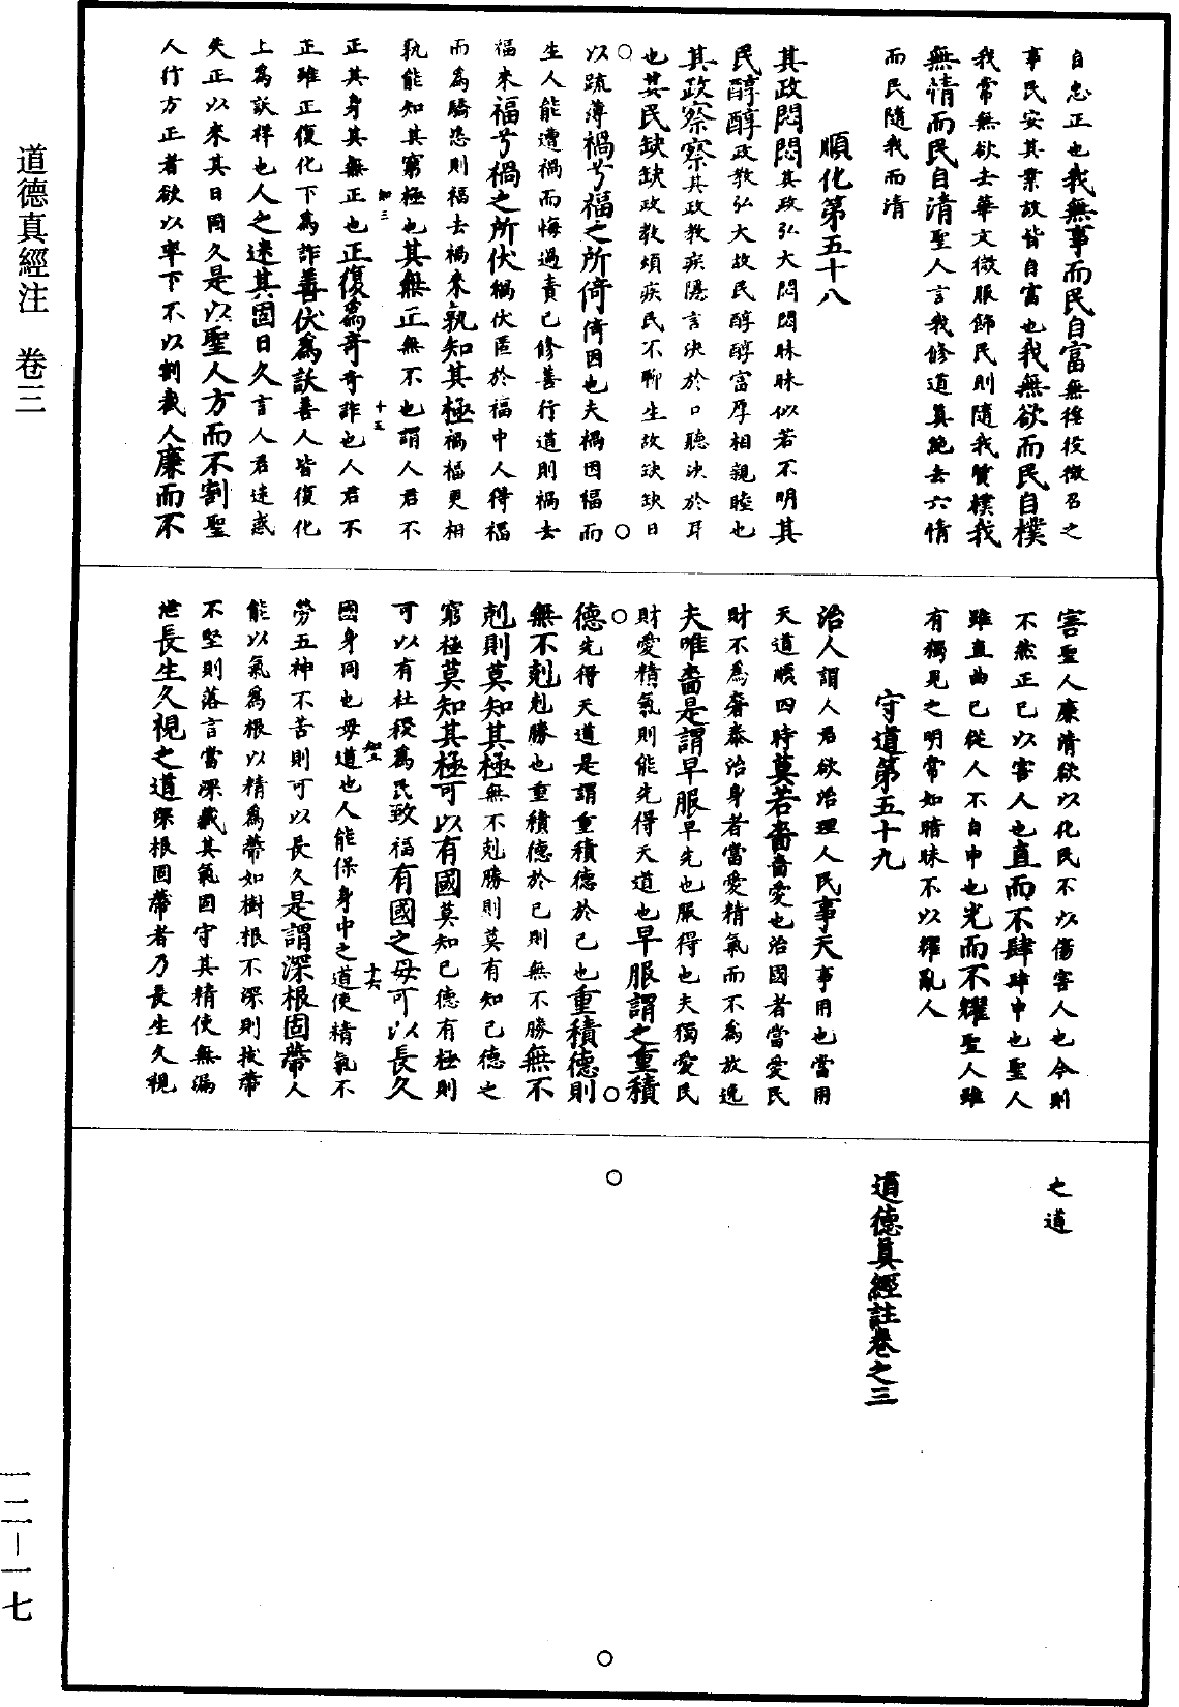 自忠正也我無事而民自富無徭役徵召之
事民安其業故皆自富也我無欲而民自樸
我常無欲去華文微服飾民則隨我質樸我
無情而民自清聖人言我修道真絶去六情
而民隨我而清
順化第五十八
其政悶悶其政弘大悶悶昧昧似若不明其
民醇醇政教弘大故民醇醇富厚相親睦也
其政察察其政教疾隱言決於口聽決於耳
也其民缺缺政教煩疾民不聊生故缺缺日
以疏薄禍兮福之所倚倚因也夫禍因福而
生人能遭禍而悔過責己修善行道則禍去
福來福兮禍之所伏禍伏匿於福中人得福
而為驕恣則福去禍來孰知其極禍福更相
孰能知其窮極也其無正無不也謂人君不
知三 十五
正其身其無正也正復為奇奇詐也人君不
正雖正復化下為詐善伏為訞善人皆復化
上為訞祥也人之迷其固日久言人君迷惑
失正以來其日固久是以聖人方而不割聖
人行方正者欲以率下不以割截人廉而不
害聖人廉清欲以化民不以傷害人也今則
不然正己以害人也直而不肆肆申也聖人
雖直曲己從人不自申也光而不耀聖人雖
有獨見之明常如暗昧不以耀亂人
守道第五十九
治人謂人君欲治理人民事天事用也當用
天道順四時莫若嗇嗇愛也治國者當愛民
財不為奢泰治身者當愛精氣而不為放逸
夫唯嗇是謂早服早先也服得也夫獨愛民
財愛精氣則能先得天道也早服謂之重積
德先得天道是謂重積德於己也重積德則
無不剋剋勝也重積德於己則無不勝無不
剋則莫知其極無不剋勝則莫有知己德之
窮極莫知其極可以有國莫知己德有極則
可以有社稷為民致福有國之母可以長久
知三 十六
國身同也母道也人能保身中之道使精氣不
勞五神不苦則可以長久是謂深根固蔕人
能以氣為根以精為蔕如樹根不深則拔蔕
不堅則落言當深藏其氣固守其精使無漏
泄長生久視之道深根固蔕者乃長生久視
之道
道德真經註卷之三
道德真經注 卷三
一二—一七